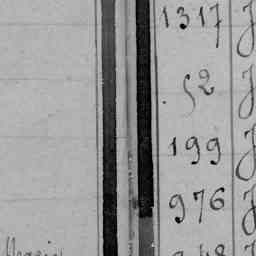 1317 J
52 J
199 J
976 J